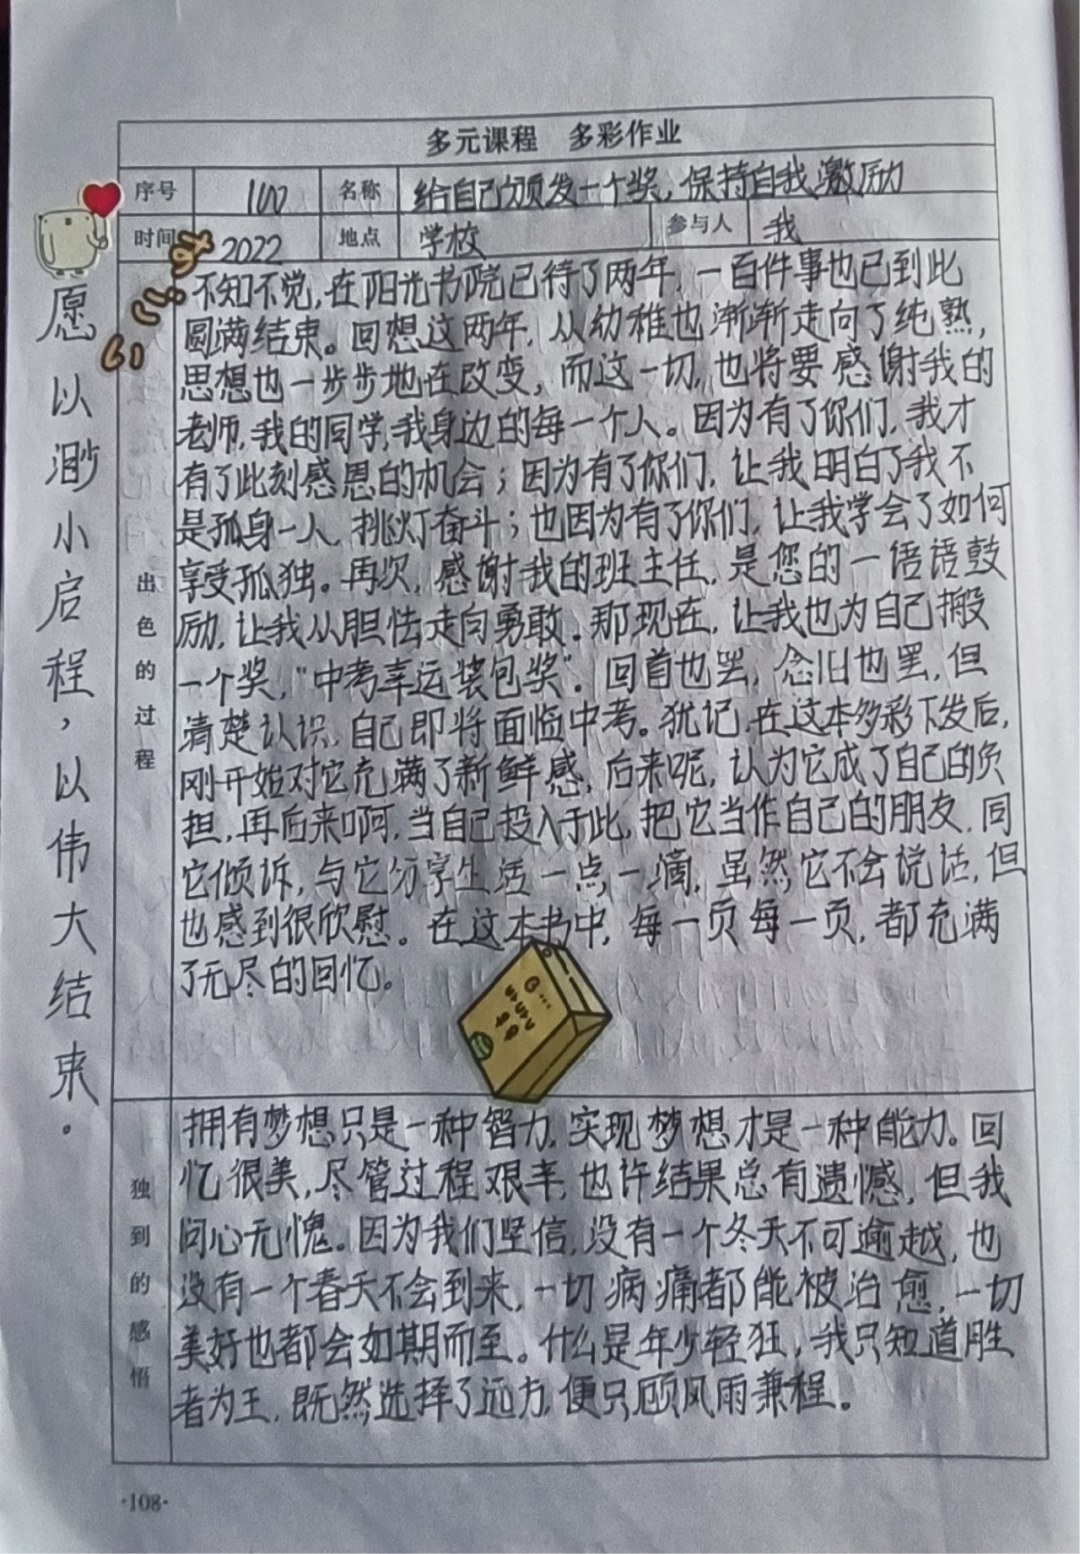 多元课程 多彩作业
序号 100 名称 给自己颁发一个奖,保持自我激励
时间 2022 地点 学校 参与人 我
出色的过程
不知不觉,在阳光书院已待了两年,一百件事也已到此
圆满结束。回想这两年,从幼稚也渐渐走向了纯熟,
思想也一步步地在改变,而这一切,也将要感谢我的
老师,我的同学,我身边的每一个人。因为有了你们,我才
有了此刻感恩的机会;因为有了你们,让我明白了我不
是孤身一人,挑灯奋斗;也因为有了你们,让我学会了如何
享受孤独。再次,感谢我的班主任,是您的一语语鼓
励,让我从胆怯走向勇敢。那现在,让我也为自己搬
一个奖,"中考幸运装包奖"。回首也罢,念旧也罢,但
清楚认识,自己即将面临中考。犹记,在这本多彩下发后,
刚开始对它充满了新鲜感,后来呢,认为它成了自己的负
担,再后来啊,当自己投入于此,把它当作自己的朋友,同
它倾诉,与它分享生活一点一滴,虽然它不会说话,但
也感到很欣慰。在这本书中,每一页每一页,都充满
了无尽的回忆。
独到的感悟
拥有梦想只是一种智力,实现梦想才是一种能力。回
忆很美,尽管过程艰辛,也许结果总有遗憾,但我
问心无愧。因为我们坚信,没有一个冬天不可逾越,也
没有一个春天不会到来,一切病痛都能被治愈,一切
美好也都会如期而至。什么是年少轻狂,我只知道胜
者为王,既然选择了远方,便只顾风雨兼程。
愿以渺小启程,以伟大结束。
·108·